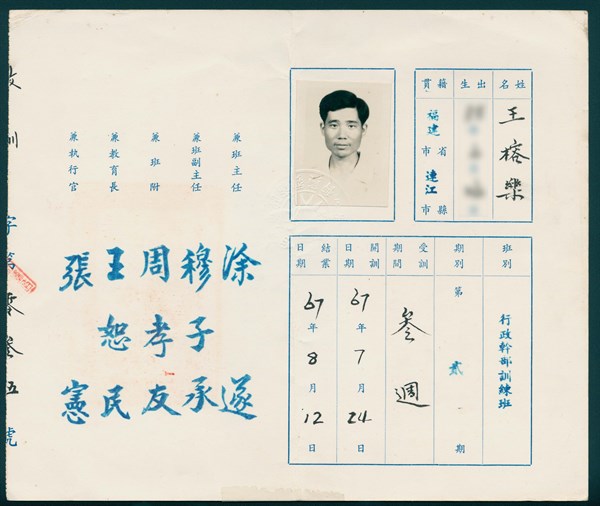 姓名
王榕樂
出生
籍貫
福建省市
連江縣市
班別
行政幹部訓練班
期別
第貳期
受訓期間
叁週
開訓日期
67年7月24日
結業日期
67年8月12日
兼班主任
涂遂
兼班副主任
穆子承
兼班附
周孝友
兼教育長
王恕民
兼執行官
張憲
訓
字第零叁五號